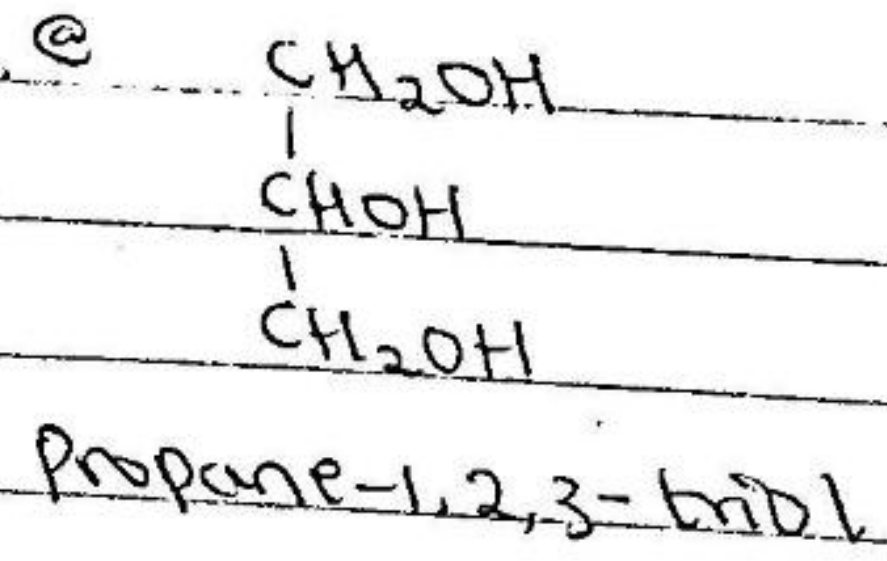 @
CH₂OH
|
CHOH
|
CH₂OH
Propane-1,2,3-triol